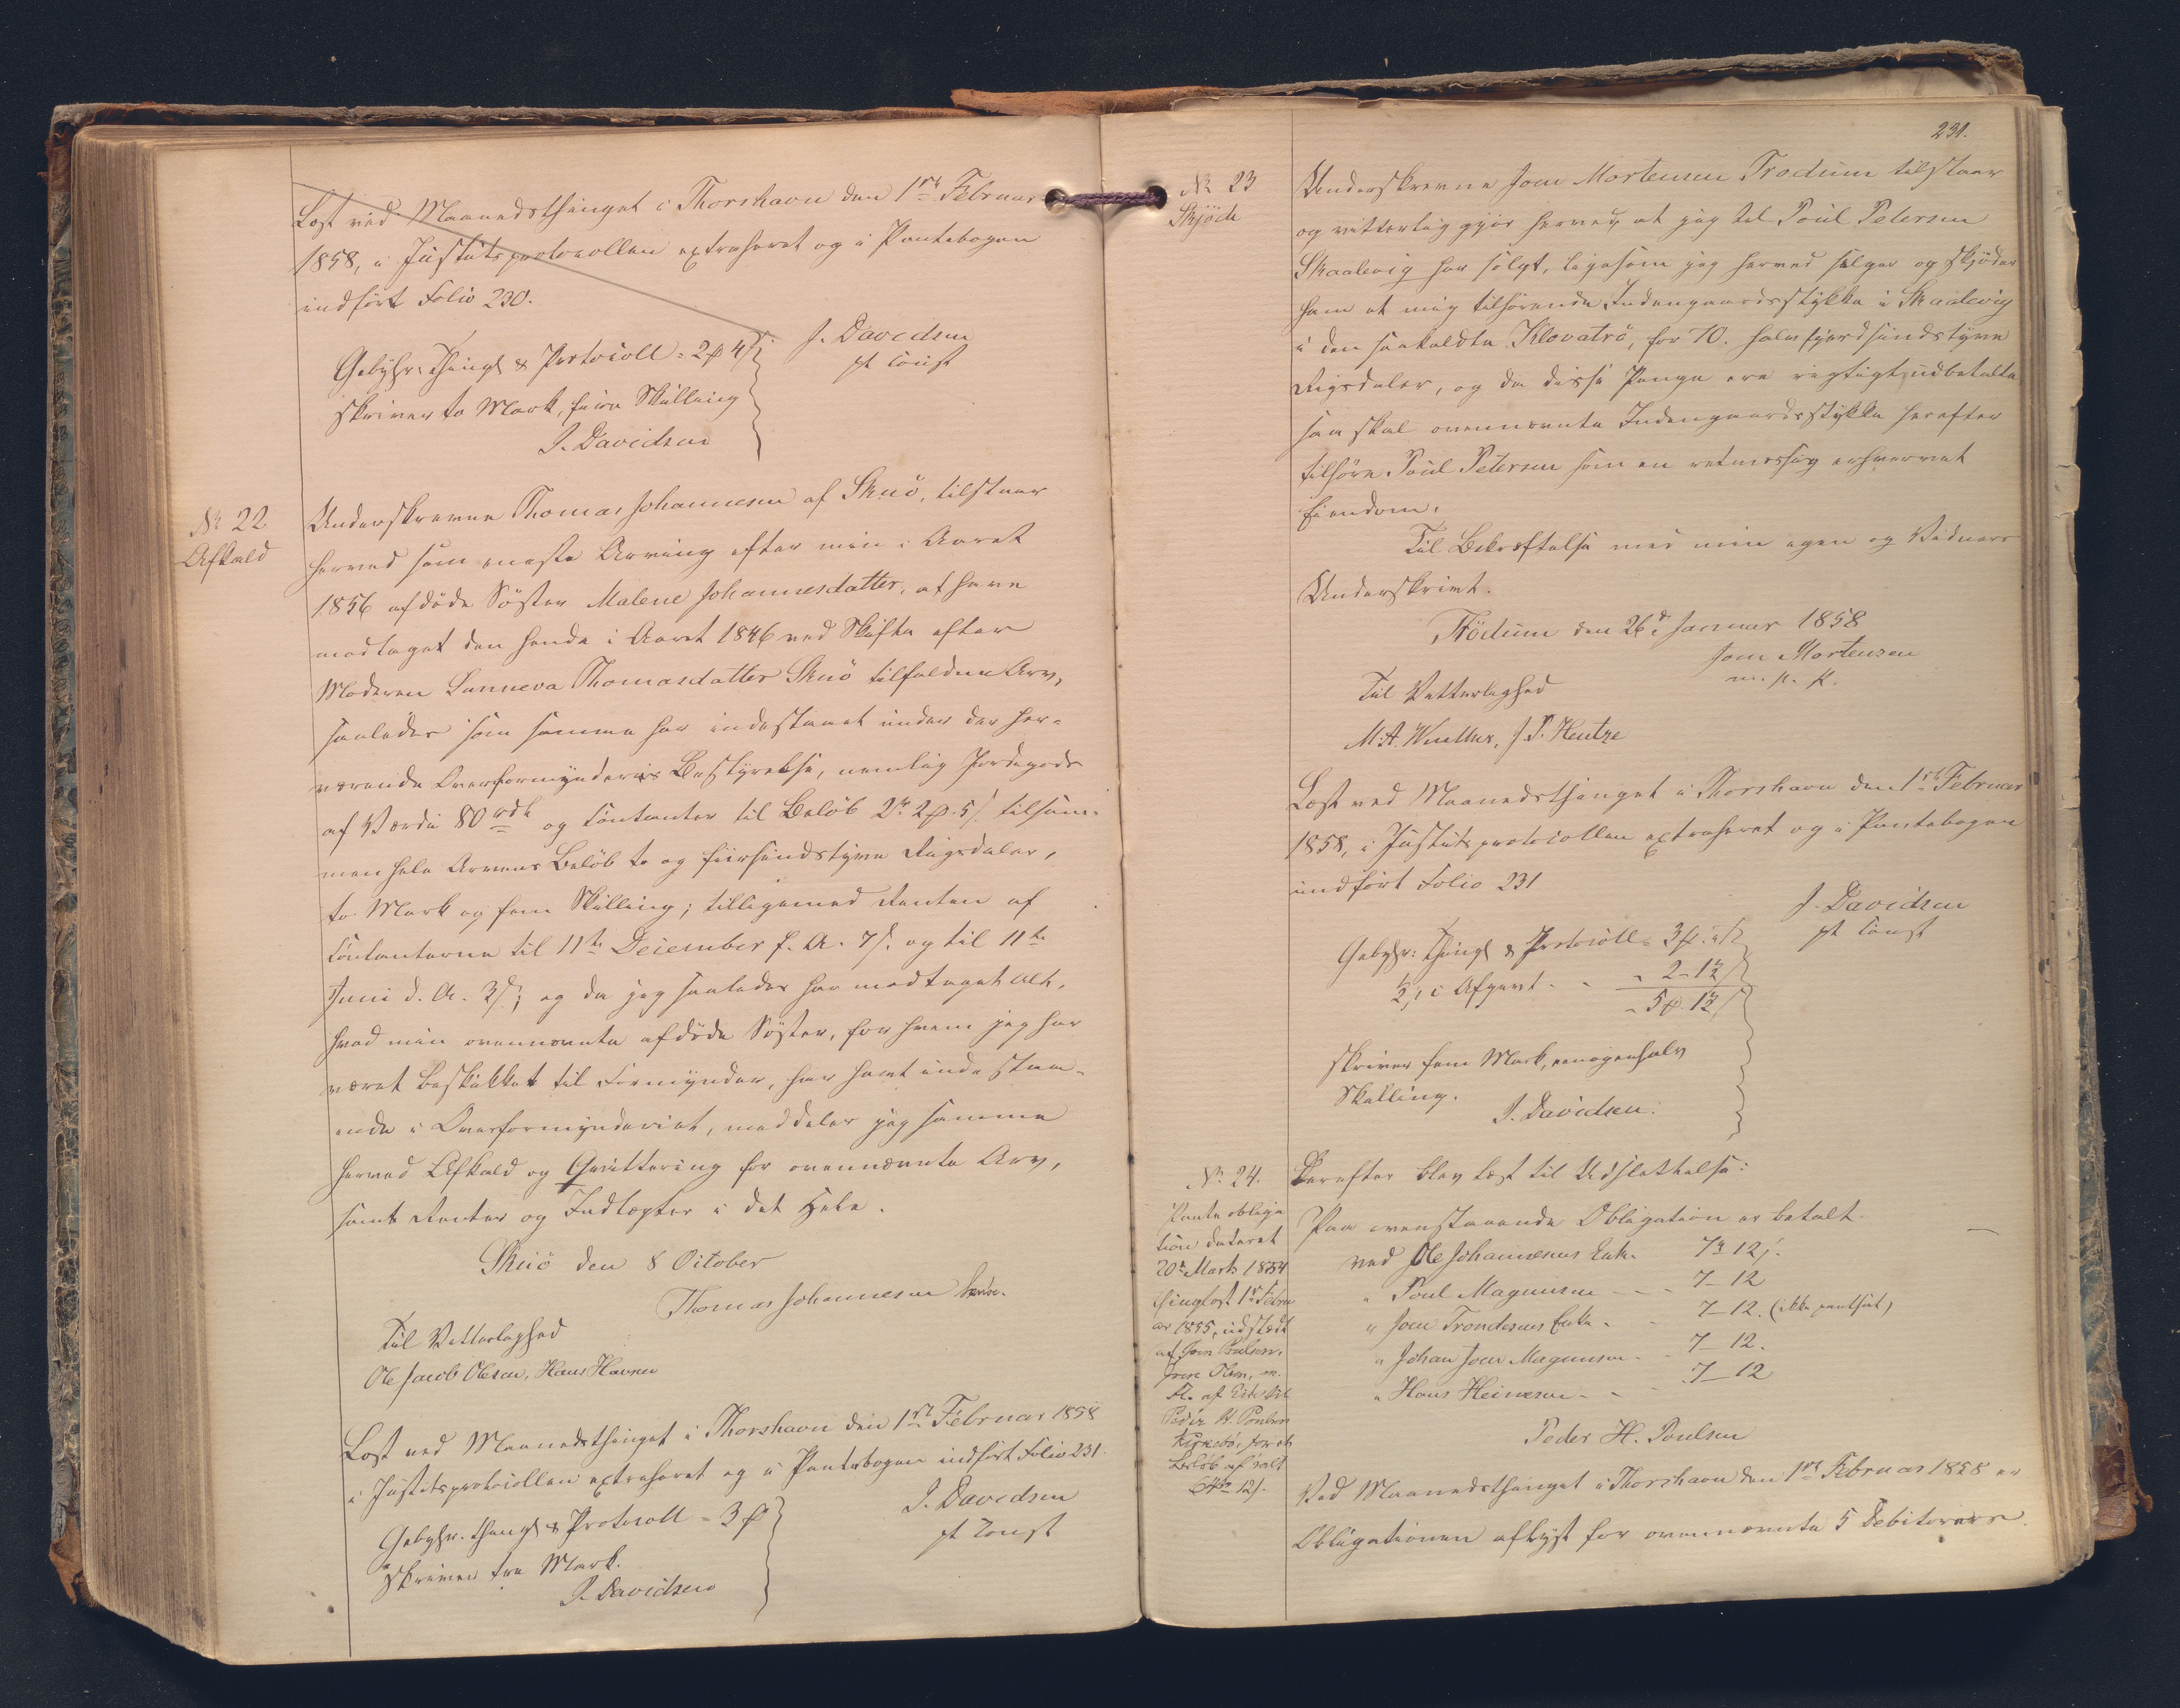 Læst ved Maanedsthinget i Thorshavn den 1ste Februar
1858, i Justitsprotocollen extraheret og i Pantebogen
indført Folio 230.
J. Davidsen
pt const
Gebyhr: Thingl & Protocoll = 2 4
skriver to Mark, fire Skilling
J. Davidsen
№ 22
Afkald
Underskrevne Thomas Johannesen af Skuö, tilstaaer
herved som eneste Arving efter min i Aaret
1856 afdøde Søster Malene Johannesdatter, at have
modtaget den hende i Aaret 1846 ved Skifte efter
Moderen Sunneva Thomasdatter Skuö tilfaldne Arv,
saaledes som samme har indestaaet under det her-
værende Overformynderies Bestyrelse, nemlig Jordegods
af Værdie 80 rdl og Contanter til Beløb 2 2 5 tilsam-
men hele Arvens Beløb to og fiirsindstyve Rigsdaler,
to Mark og fem Skilling; tilligemed Renten af
Contanterne til 11te December f. A. 7 s. og til 11te
Juni d. A. 3 s.; og da jeg saaledes har modtaget alt,
hvad min ovennævnte afdøde Søster, for hvem jeg har
været beskikket til Formynder, har havt indestaa-
ende i Overformynderiet, meddeler jeg samme
herved Afkald og Qvittering for ovennævnte Arv,
samt Renter og Indtægter i det Hele.
Skuö den 8 October
Thomas Johannesen
Til Vitterlighed
Ole Jacob Olesen, Hans
Læst ved Maanedsthinget i Thorshavn den 1ste Februar 1858
i Justitsprotocollen extraheret og i Pantebogen indført Folio 231.
J. Davidsen
pt const
Gebyhr. Thingl & Protocoll = 3
skriver tre Mark.
J. Davidsen
231.
№ 23
Skjöde
Underskrevne Joen Mortensen Trödum tilstaaer
og vitterliggjør herved, at jeg til Poul Petersen
Skaalevig har solgt, ligesom jeg herved sælger og skjøder
ham et mig tilhørende Indengaardsstykke i Skaalevig
i den saakaldte Klovatrö, for 70. halvfjerdsindstyve
Rigsdaler, og da disse Penge ere rigtigt udbetalte
saa skal ovennævnte Indengaardsstykke herefter
tilhøre Poul Petersen som en retmæssig erhvervet
Eiendom.
Til Bekræftelse med min egen og Vidners
Underskrivt.
Trödum den 26d Januar 1858
Joen Mortensen
m. p. p.
Til Vitterlighed
M. A. Winther, J. P. Hentze
Læst ved Maanedsthinget i Thorshavn den 1ste Februar
1858, i Justitsprotocollen extraheret og i Pantebogen
indført Folio 231
J. Davidsen
pt const
Gebyhr: Thingl & Protocoll = 3
½ Afgivt - - 2 - 1½
- 5 1½
skriver fem Mark, eenogenhalv
Skilling.
J. Davidsen.
№ 24.
Panteobliga
tion dateret
20de Marts 1854
thinglæst 1ste Febru
ar 1855, udstedt
af Joen Poulsen,
Joen Olsen, m.
fl. af Eide til
Peder H. Poulsen
Kirkebö, for et
Beløb af ialt
Derefter blev læst til Udslettelse:
Paa ovenstaaende Obligation er betalt
ved Ole Johannesens Enke. 7 12
" Poul Magnusen - - - 7 - 12
" Joen Trondesens Enke - 7 - 12. (ikke pantsat)
" Johan Joen Magnusen - 7 - 12.
" Hans Heinesen - - - 7 - 12
Peder H. Poulsen
Ved Maanedsthinget i Thorshavn den 1ste Februar 1858 er
Obligationen aflyst for ovennævnte 5 Debitorer.